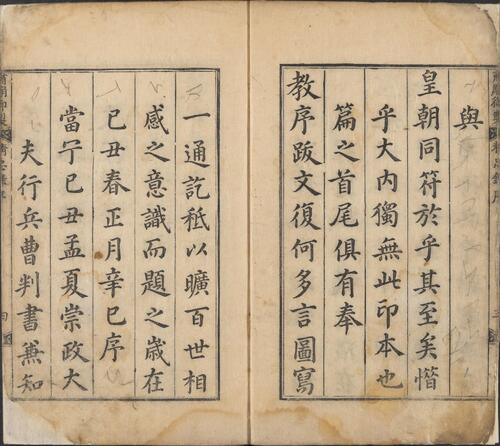 與
皇朝同符於乎其至矣惜
乎大內獨無此印本也
篇之首尾俱有奉
教序跋文復何多言圖寫
一通訖秪以曠百世相
感之意識而題之歲在
己丑春正月辛巳序
當宁己丑孟夏崇政大
夫行兵曹判書兼知